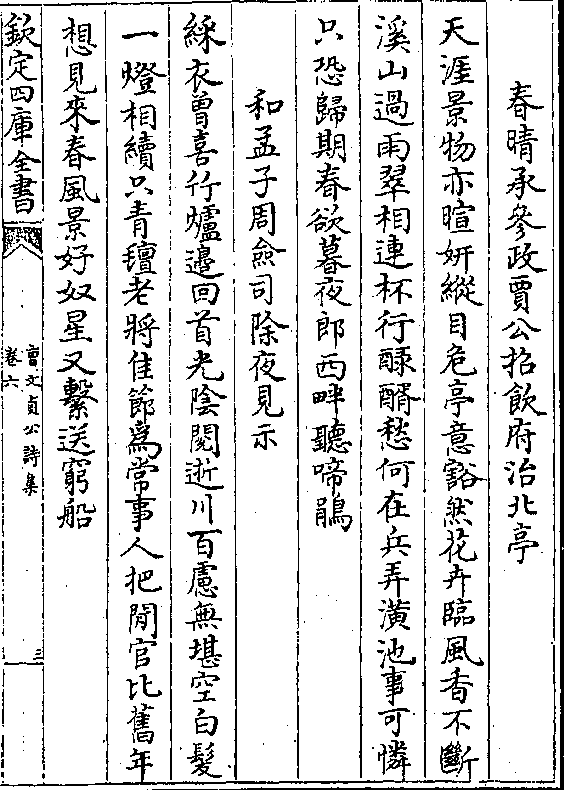 春晴承參政賈公招飲府治北亭
天涯景物亦暄妍縱目危亭意豁然花卉臨風香不斷
溪山過雨翠相連杯行醁醑愁何在兵弄潢池事可憐
只恐歸期春欲暮夜郎西畔聽啼鵑
和孟子周僉司除夜見示
綵衣曾喜行爐邉回首光陰閱逝川百慮無堪空白髮
一燈相續只青氊老將佳節為常事人把閒官比舊年
想見來春風景好奴星又繫送窮船
欽定四庫全書
曹文貞公詩集
卷六
三